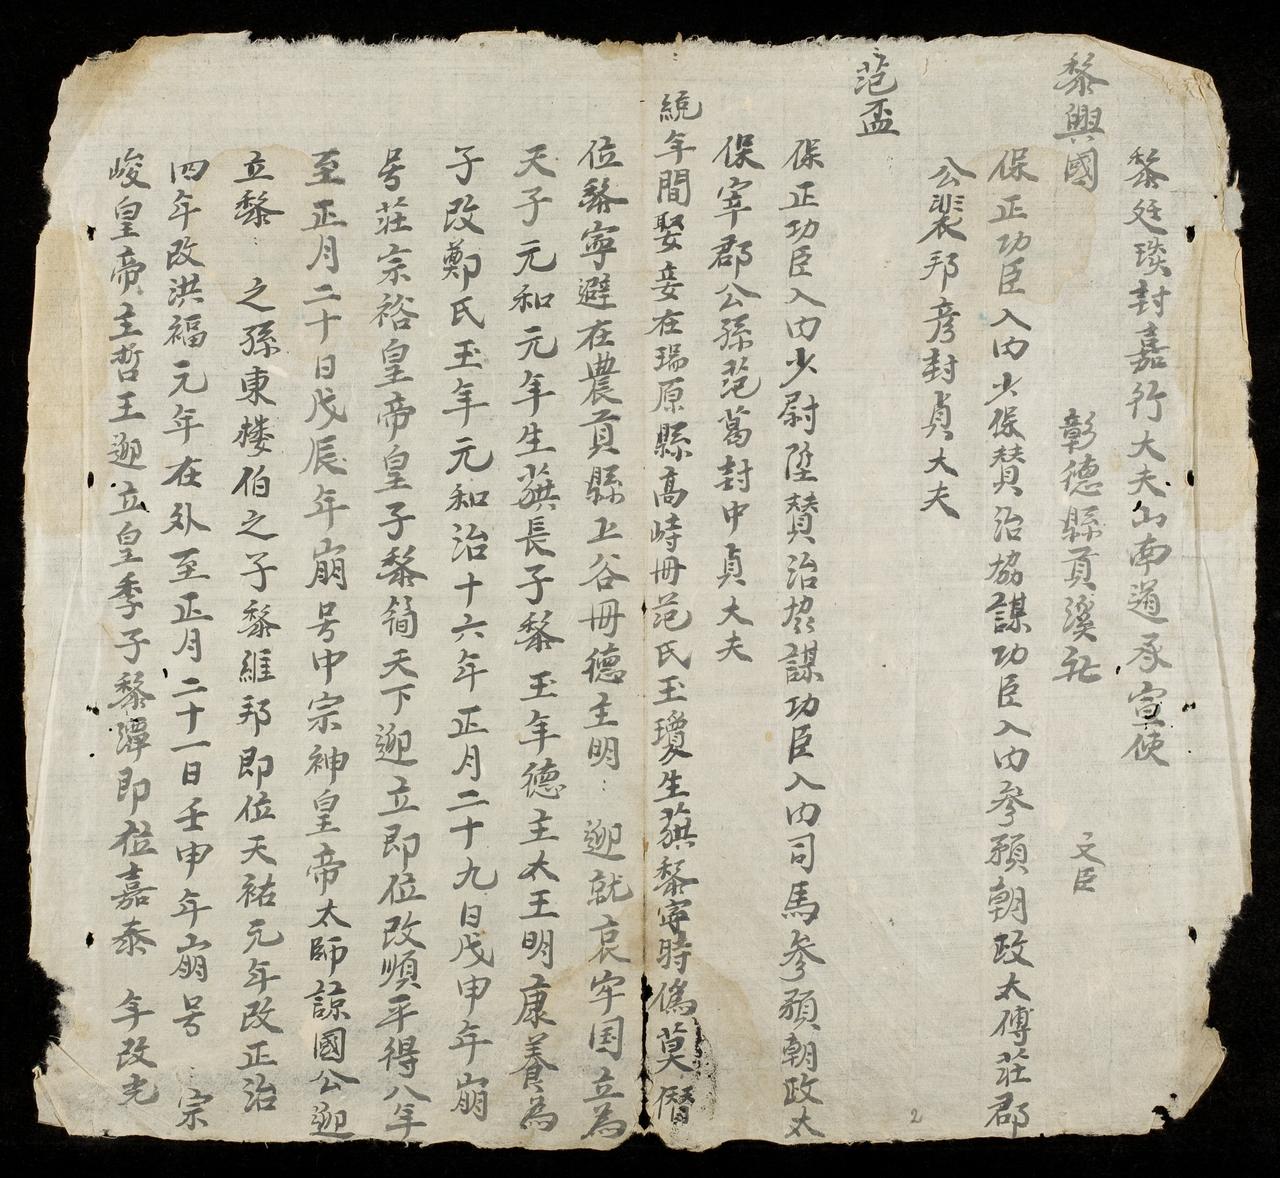 黎廷琰封嘉行大夫山南道承宣使
黎興國 彰德縣貢溪社 文臣
保正功臣入内少保贊治協謀功臣入内參預朝政太傅莊郡
公裴邦彦封貞大夫
范盃
保正功臣入内少尉陞贊治協謀功臣入内司馬參預朝政太
保宰郡公孫范葛封中貞大夫
統年間娶妾在瑞原縣高峙冊范氏玉瓊生蘱黎寧時偽莫僭
位黎寧避在農貢縣上谷冊德主明 迎就哀牢国立為
天子元和元年生蘱長子黎玉年德主太王明康養為
子改鄭氏玉年元和治十六年正月二十九日戊申年崩
号莊宗裕皇帝皇子黎簡天下迎立即位改順平得八年
至正月二十日戊辰年崩号中宗神皇帝太師諒國公迎
立黎 之孫東楼伯之子黎維邦即位天祐元年改正治
四年改洪福元年在外至正月二十一日壬申年崩号 宗
峻皇帝主哲王迎立皇季子黎潭即位嘉泰 年改光
2